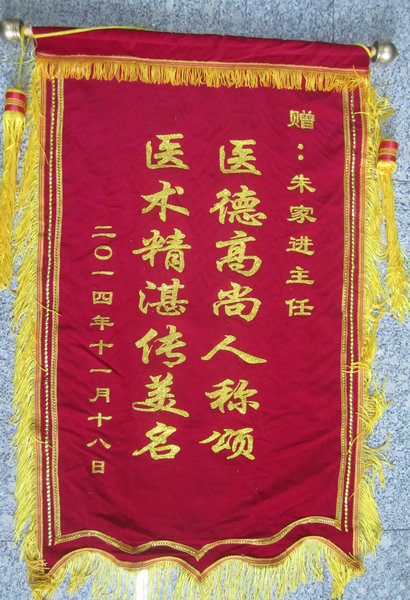 赠：朱家进主任
医德高尚人称颂
医术精湛传美名
二〇一四年十一月十八日